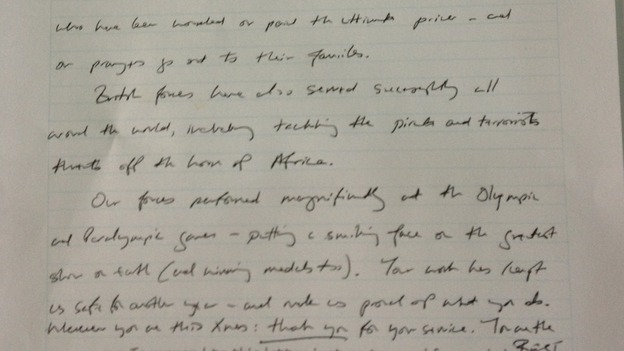 who have been wounded or paid the ultimate price - and
our prayers go out to their families.
British forces have also served successfully all
around the world, including tackling the pirates and terrorists
threats off the horn of Africa.
Our forces performed magnificently at the Olympic
and Paralympic games - putting a smiling face on the greatest
show on earth (and winning medals too). Your work has kept
us safe for another year - and made us proud of what you do.
Wherever you are this Xmas: thank you for your service. You are the
BEST